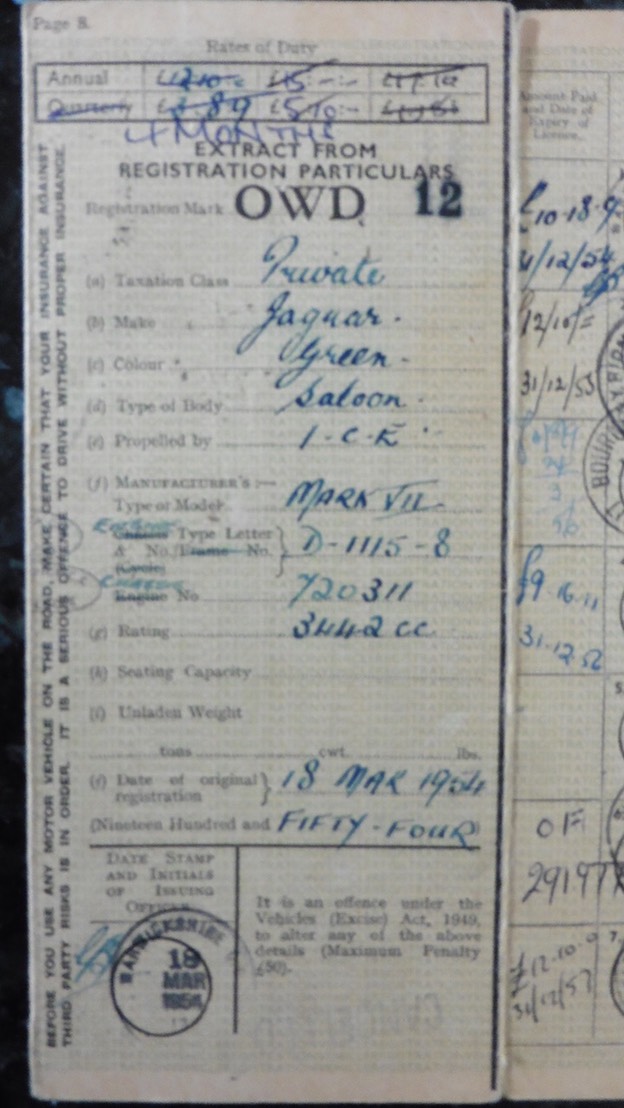 Page 8.
Rates of Duty
Annual £12-10-- £15-:-:-
Quarterly £5/10:-
4 MONTHS
EXTRACT FROM
REGISTRATION PARTICULARS
Registration Mark OWD 12
(a) Taxation Class Private
(b) Make Jaguar.
(c) Colour Green -
(d) Type of Body Saloon.
(e) Propelled by I-C-E
(f) MANUFACTURER'S:—
Type or Model MARK VII
Engine Chassis Type Letter
& No./Frame No. } D-1115-8
(Cycle)
Chassis Engine No 720311
(g) Rating 3442 cc
(h) Seating Capacity
(i) Unladen Weight
tons cwt. lbs.
(j) Date of original
registration } 18 MAR 1954
(Nineteen Hundred and FIFTY-FOUR)
DATE STAMP
AND INITIALS
OF ISSUING
OFFICER
WARWICKSHIRE
18
MAR
1954
It is an offence under the
Vehicles (Excise) Act, 1949,
to alter any of the above
details (Maximum Penalty
£50).
BEFORE YOU USE ANY MOTOR VEHICLE ON THE ROAD, MAKE CERTAIN THAT YOUR INSURANCE AGAINST
THIRD PARTY RISKS IS IN ORDER. IT IS A SERIOUS OFFENCE TO DRIVE WITHOUT PROPER INSURANCE.
Amount Paid
and Date of
Expiry of
Licence.
£10-18-9
31/12/54
£12/10/=
31/12/55
£9-16-11
31-12-56
£12-10-0
31/12/57